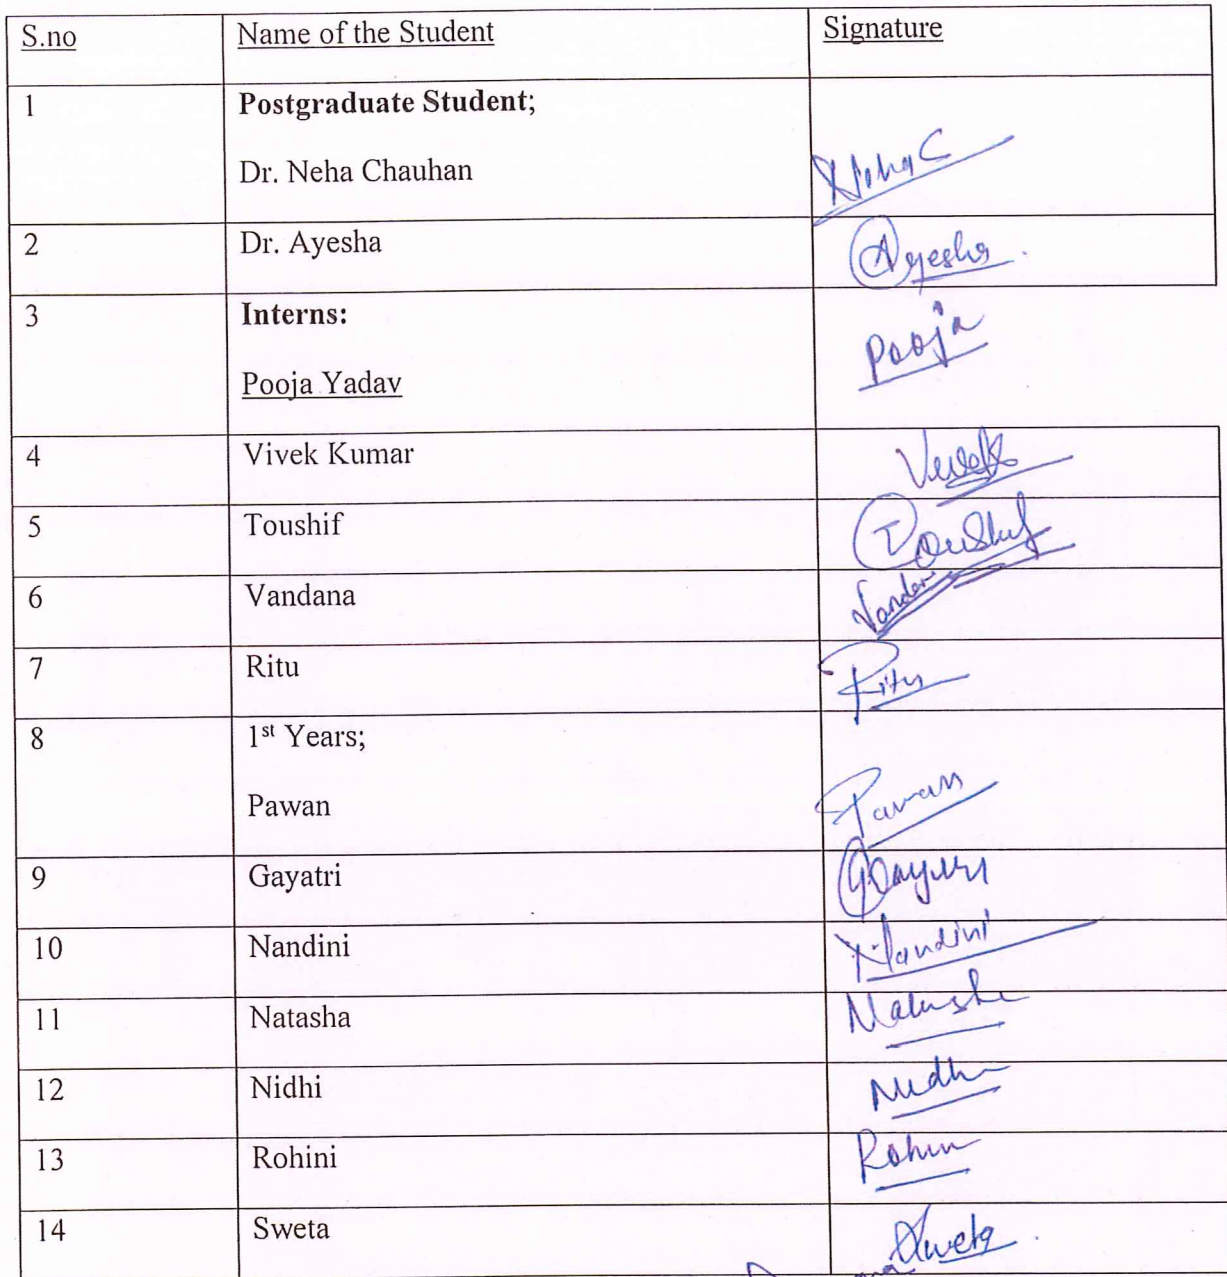 S.no Name of the Student Signature
1 Postgraduate Student;
Dr. Neha Chauhan Neha C
2 Dr. Ayesha Ayesha
3 Interns:
Pooja Yadav Pooja
4 Vivek Kumar Vivek
5 Toushif Toushif
6 Vandana
7 Ritu Ritu
8 1st Years;
Pawan Pawan
9 Gayatri
10 Nandini Nandini
11 Natasha Natasha
12 Nidhi Nidhi
13 Rohini
14 Sweta Sweta